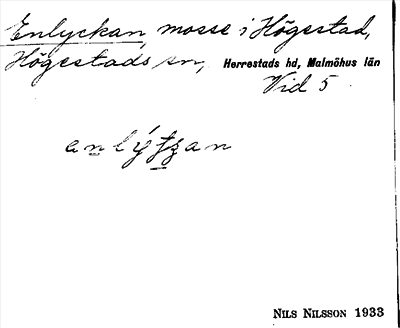 Enlyckan, mosse i Högestad,
Högestads sn, Herrestads hd, Malmöhus län
Vid 5
NILS NILSSON 1933